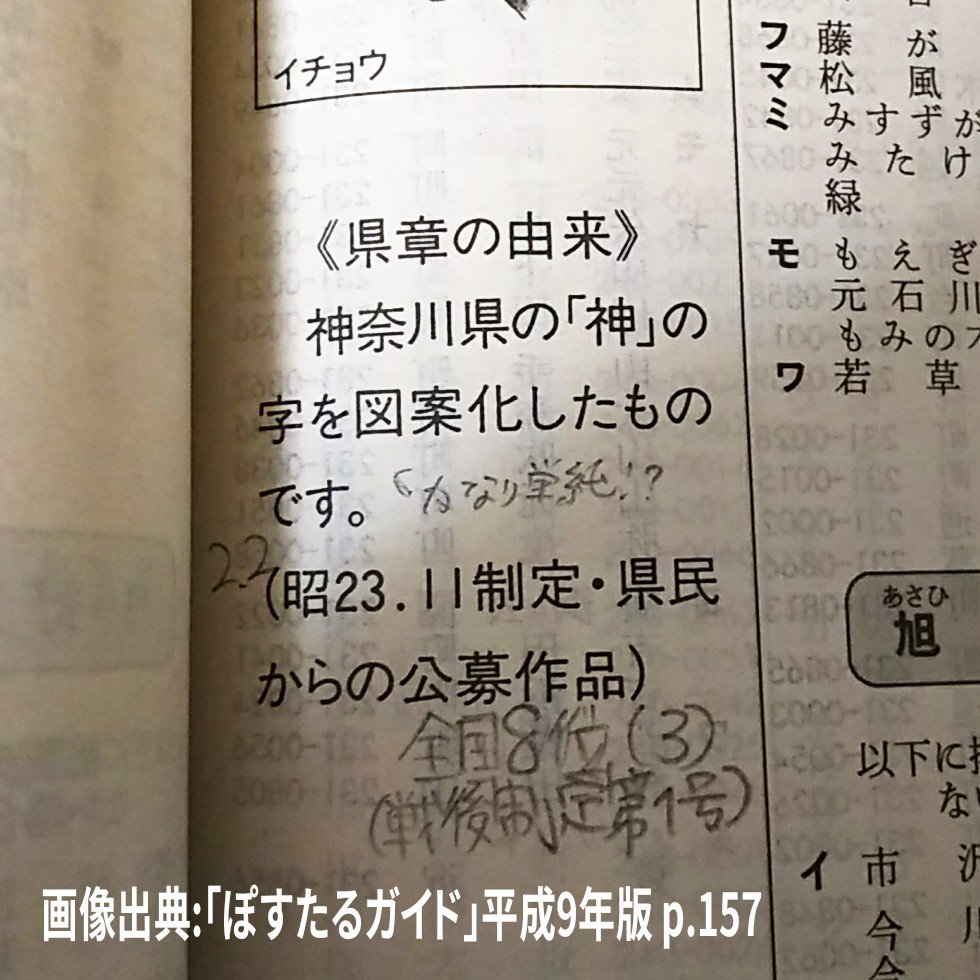 イチョウ
《県章の由来》
神奈川県の「神」の
字を図案化したもの
です。
かなり単純!?
22
(昭23.11制定・県民
からの公募作品)
全国8位(3)
(戦後制定第1号)
フ 藤が
マ 松風
ミ みすずが
みたけ
緑
モ もえぎ
元石川
もみの
ワ 若草
あさひ
旭
以下に
な
イ 市
今川
画像出典:「ぽすたるガイド」平成9年版 p.157